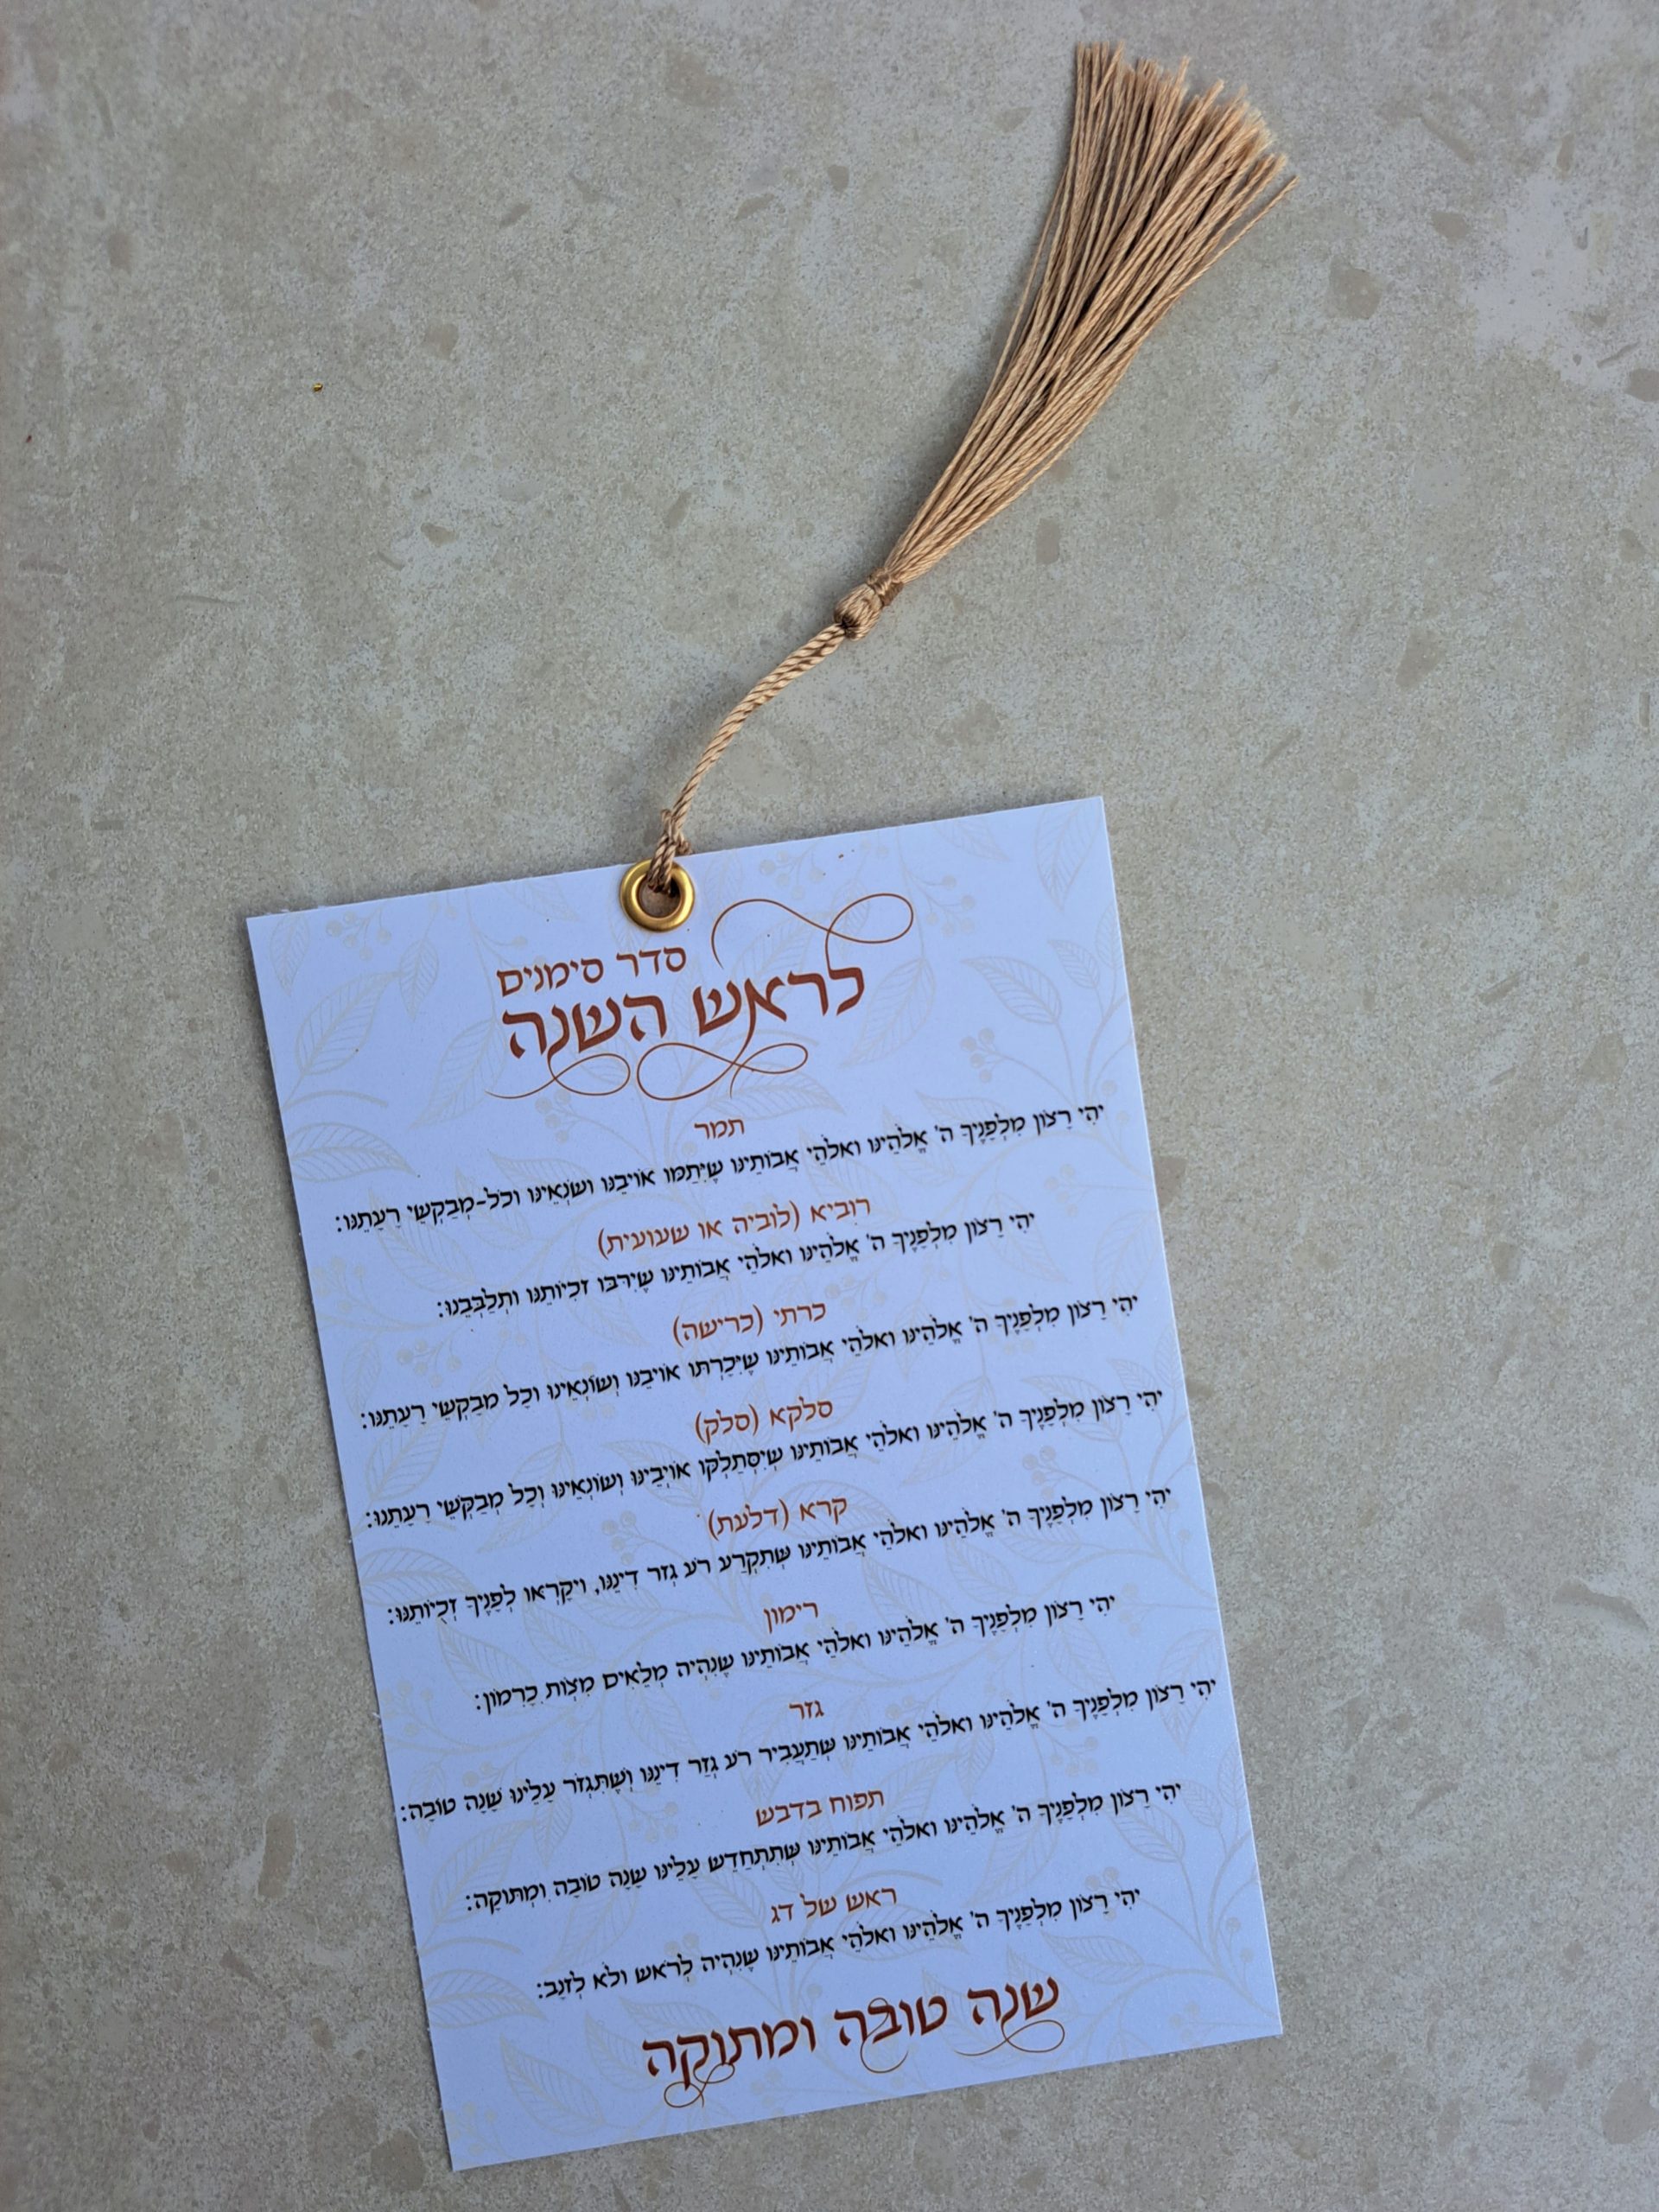 סדר סימנים
לראש השנה
תמר
יהִי רָצֹון מִלְּפָנֶיךָ ה' אֱלֹהֵינוּ וֵאלֹהֵי אֲבוֹתֵינוּ שֶׁיִּתַּמּוּ אוֹיְבֵנוּ וְשׂנְאֵינוּ וכֹל-מְבַקְשֵׁי רָעָתֵנוּ:
רוביא (לוביה או שעועית)
יהִי רָצֹון מִלְּפָנֶיךָ ה' אֱלֹהֵינוּ וֵאלֹהֵי אֲבוֹתֵינוּ שֶׁיִּרְבּוּ זכִיּוֹתֵנוּ וּתְלַבְּבֵנוּ:
כרתי (כרישה)
יהִי רָצֹון מִלְּפָנֶיךָ ה' אֱלֹהֵינוּ וֵאלֹהֵי אֲבוֹתֵינוּ שֶׁיִּכָּרְתוּ אוֹיבֵנוּ וְשׂוֹנְאֵינוּ וכָל מבַקְשֵׁי רָעָתֵנוּ:
סלקא (סלק)
יהִי רָצֹון מִלְּפָנֶיךָ ה' אֱלֹהֵינוּ וֵאלֹהֵי אֲבוֹתֵינוּ שֶׁיִּסְתַּלְּקוּ אוֹיְבֵינוּ וְשׂוֹנְאֵינוּ וְכָל מְבַקְּשֵׁי רָעָתֵנוּ:
קרא (דלעת)
יהִי רָצֹון מִלְּפָנֶיךָ ה' אֱלֹהֵינוּ וֵאלֹהֵי אֲבוֹתֵינוּ שֶׁתִּקְרַע רֹע גְּזר דִּינֵנוּ, ויִקָּרְאוּ לְפָנֶיךָ זְכֻיּוֹתֵנוּ:
רימון
יהִי רָצֹון מִלְּפָנֶיךָ ה' אֱלֹהֵינוּ וֵאלֹהֵי אֲבוֹתֵינוּ שֶׁנִּהְיֶה מְלֵאִים מִצְוֹת כָּרִמּוֹן:
גזר
יהִי רָצֹון מִלְּפָנֶיךָ ה' אֱלֹהֵינוּ וֵאלֹהֵי אֲבוֹתֵינוּ שֶׁתַּעֲבִיר רֹע גְּזַר דִּינֵנוּ וְשֶׁתִּגְזֹר עָלֵינוּ שָׁנָה טוֹבָה:
תפוח בדבש
יהִי רָצֹון מִלְּפָנֶיךָ ה' אֱלֹהֵינוּ וֵאלֹהֵי אֲבוֹתֵינוּ שֶׁתִּתְחַדֵּשׁ עָלֵינוּ שָׁנָה טוֹבָה וּמְתוּקָה:
ראש של דג
יהִי רָצֹון מִלְּפָנֶיךָ ה' אֱלֹהֵינוּ וֵאלֹהֵי אֲבוֹתֵינוּ שֶׁנִּהְיֶה לְרֹאשׁ ולֹא לְזָנָב:
שנה טובה ומתוקה